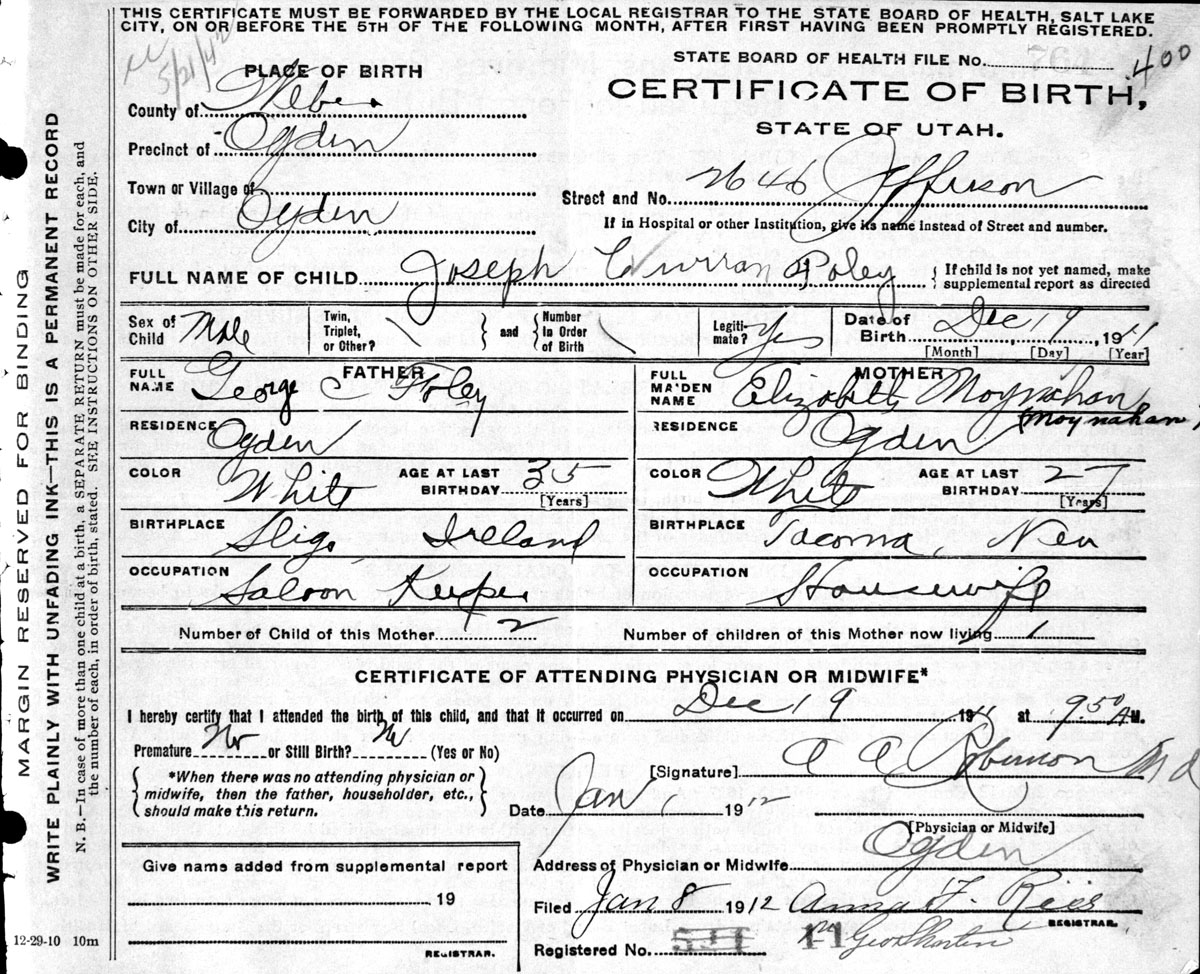 THIS CERTIFICATE MUST BE FORWARDED BY THE LOCAL REGISTRAR TO THE STATE BOARD OF HEALTH, SALT LAKE
CITY, ON OR BEFORE THE 5TH OF THE FOLLOWING MONTH, AFTER FIRST HAVING BEEN PROMPTLY REGISTERED.
5/21/42
STATE BOARD OF HEALTH FILE No. 400
CERTIFICATE OF BIRTH,
STATE OF UTAH.
PLACE OF BIRTH
County of Weber
Precinct of Ogden
Town or Village of
City of Ogden
Street and No. 2646 Jefferson
If in Hospital or other Institution, give its name Instead of Street and number.
FULL NAME OF CHILD Joseph Curran Foley
{ If child is not yet named, make
supplemental report as directed
Sex of Child Male
Twin, Triplet, or Other?
and
Number in Order of Birth
Legiti-mate? Yes
Date of Birth Dec 19, 1911
[Month] [Day] [Year]
FATHER
FULL NAME George C Foley
RESIDENCE Ogden
COLOR White AGE AT LAST BIRTHDAY 35 [Years]
BIRTHPLACE Sligo Ireland
OCCUPATION Saloon Keeper
MOTHER
FULL MAIDEN NAME Elizabeth Moynahan
(Moynahan)
RESIDENCE Ogden
COLOR White AGE AT LAST BIRTHDAY 27 [Years]
BIRTHPLACE Tacoma, Nev
OCCUPATION Housewife
Number of Child of this Mother 2 Number of children of this Mother now living 1
CERTIFICATE OF ATTENDING PHYSICIAN OR MIDWIFE*
I hereby certify that I attended the birth of this child, and that it occurred on Dec 19 1911 at 9.50 A.M.
Premature No or Still Birth? No (Yes or No)
{ *When there was no attending physician or
midwife, then the father, householder, etc.,
should make this return. }
[Signature] A A Robinson M d
Date Jan 1 1912
[Physician or Midwife]
Address of Physician or Midwife Ogden
Give name added from supplemental report
19
REGISTRAR.
Filed Jan 8 1912 Anna F. Ries
REGISTRAR.
Registered No.
12-29-10 10m
MARGIN RESERVED FOR BINDING
WRITE PLAINLY WITH UNFADING INK—THIS IS A PERMANENT RECORD
N. B.—In case of more than one child at a birth, a SEPARATE RETURN must be made for each, and
the number of each, in order of birth, stated. SEE INSTRUCTIONS ON OTHER SIDE.